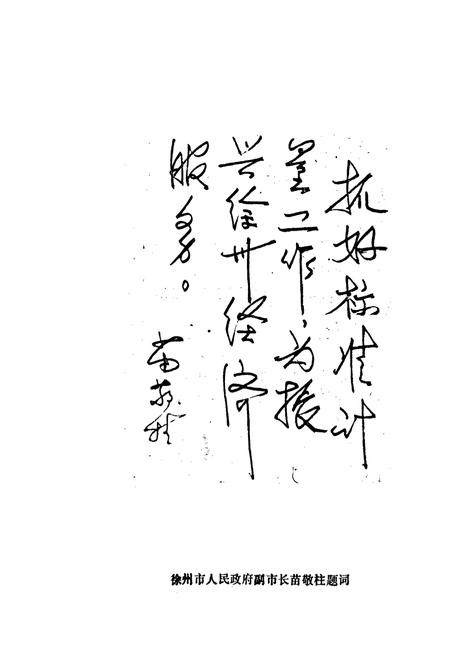 抓好标准计
量工作，为振
兴徐州经济
服务。
苗敬柱
徐州市人民政府副市长苗敬柱题词